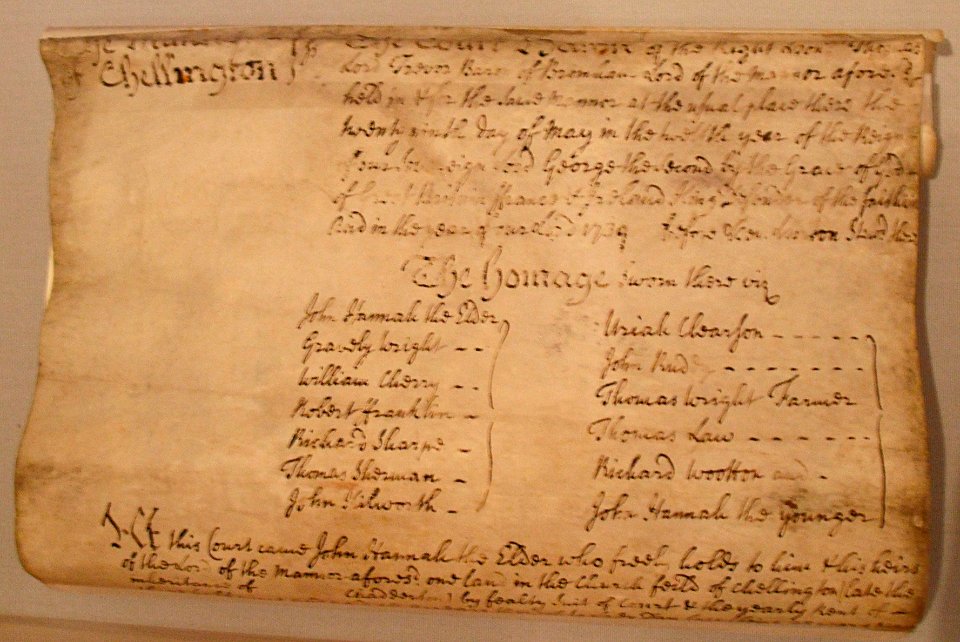 The Manor
of Chellington
The Court Baron of the Right Honble Thomas
Lord Trevor Baron of Bromham Lord of the Mannor aforesd
held in & for the same Mannor at the usual place there the
twenty ninth day of May in the twelfth year of the Reign
of our sovereign Lord George the second by the Grace of God
of Great Britain ffrance & Ireland King Defender of the faith
And in the year of our Lord 1739 Before
The Homage sworn there viz
John Hannah the Elder
Gravely Wright - -
William Cherry - -
Robert ffranklin -
Richard Sharpe -
Thomas Sherman -
John Tilworth -
Uriah Clearson - - - - -
John Rudd - - - - - - -
Thomas Wright Farmer
Thomas Law - - - - - - -
Richard Wootton and -
John Hannah the Younger
At this Court came John Hannah the Elder who freely holds to him & his heirs
of the Lord of the Mannor aforesd one land in the Church feild of Chellington (late the
inheritance of by fealty Suit of Court & the yearly Rent of